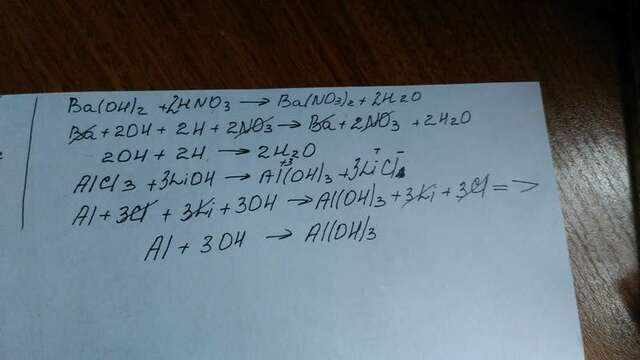 Ba(OH)2 + 2HNO3 → Ba(NO3)2 + 2H2O
Ba + 2OH + 2H + 2NO3 → Ba + 2NO3 + 2H2O
2OH + 2H → 2H2O
AlCl3 + 3LiOH → Al(OH)3 + 3LiCl
Al + 3Cl + 3Li + 3OH → Al(OH)3 + 3Li + 3Cl =>
Al + 3OH → Al(OH)3